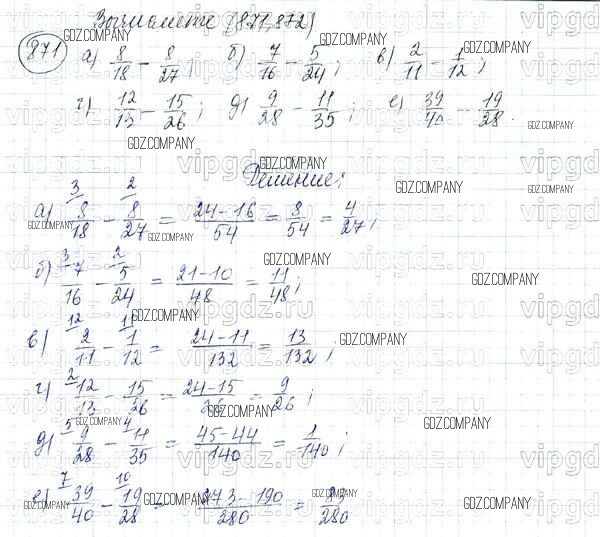 Вычислите (871, 872)
871 а) 8/18 - 8/27; б) 7/16 - 5/24; в) 2/11 - 1/12;
г) 12/13 - 15/26; д) 9/28 - 11/35; е) 39/40 - 19/28.
Решение:
а) 8/18 - 8/27 = 24-16/54 = 8/54 = 4/27;
б) 7/16 - 5/24 = 21-10/48 = 11/48;
в) 2/11 - 1/12 = 24-11/132 = 13/132;
г) 12/13 - 15/26 = 24-15/26 = 9/26;
д) 9/28 - 11/35 = 45-44/140 = 1/140;
е) 39/40 - 19/28 = 273-190/280 = 83/280
GDZ.COMPANY
vipgdz.ru